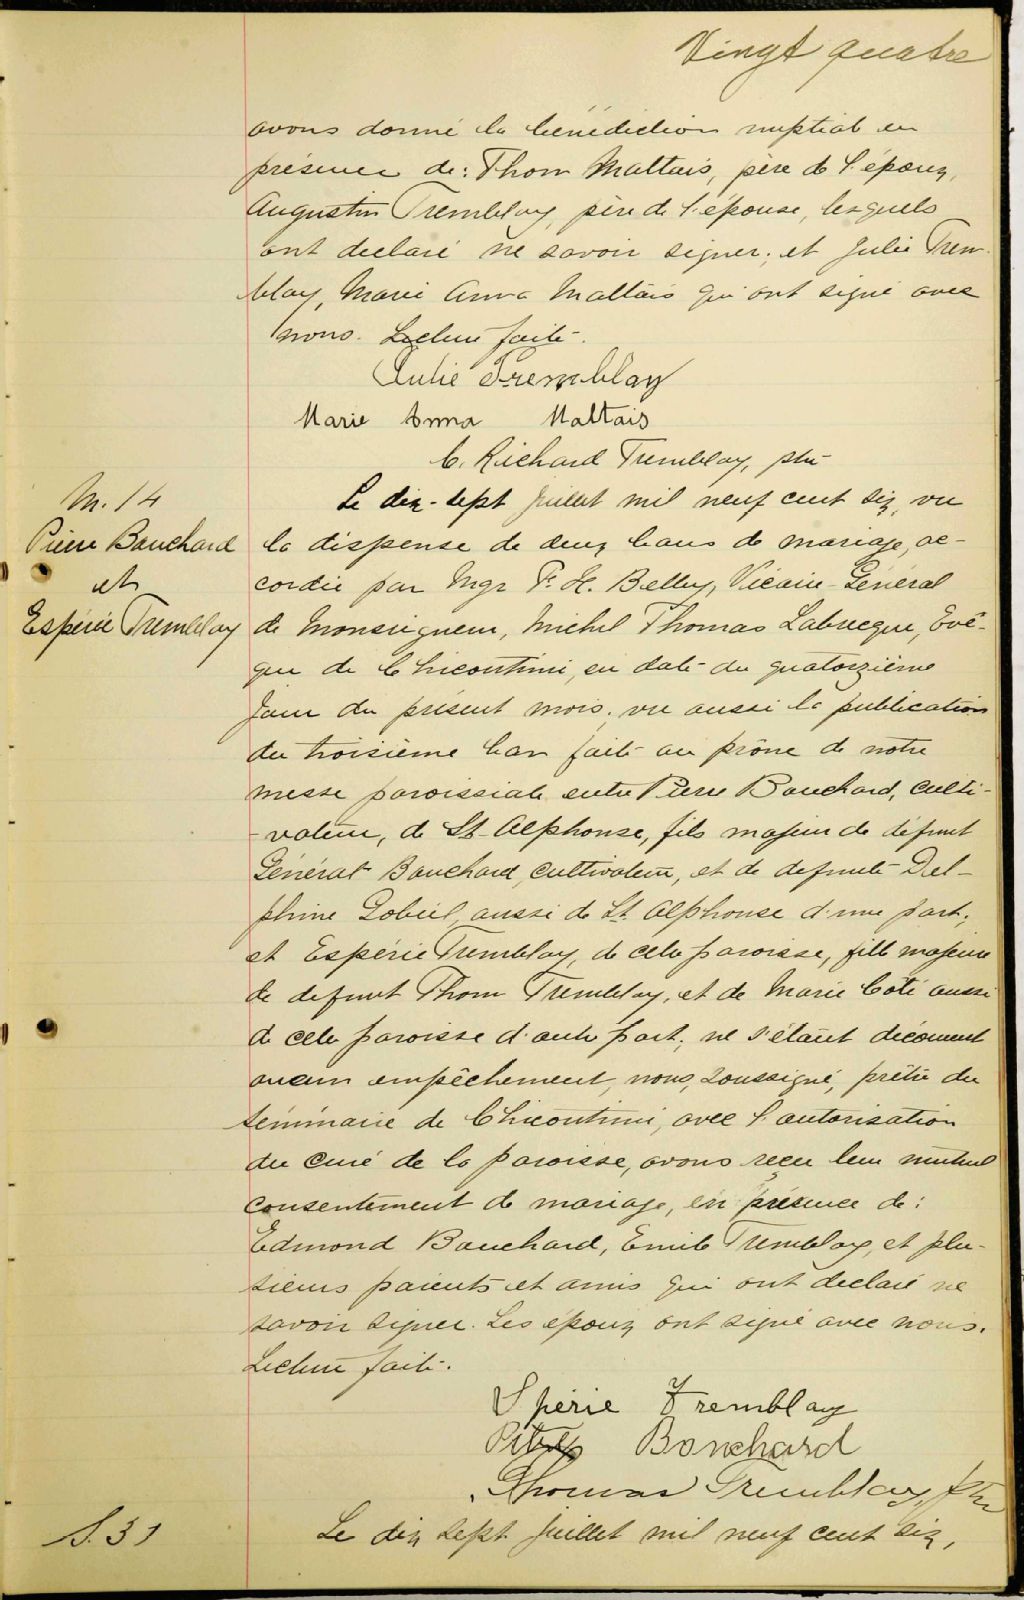 Vingt quatre
avons donné la bénédiction nuptiale en
présence de: Thom Maltais, père de l'époux,
Augustin Tremblay, père de l'épouse, lesquels
ont déclaré ne savoir signer; et Julie Trem-
blay, Marie Anna Maltais qui ont signé avec
nous. Lecture faite.
Julie Tremblay
Marie Anna Maltais
C. Richard Tremblay, ptre
M. 14
Pierre Bouchard
et
Espérie Tremblay
Le dix-sept Juillet mil neuf cent six, vu
la dispense de deux bans de mariage, ac-
cordée par Mgr F. H. Belley, Vicaire-Général
de Monseigneur, Michel Thomas Labrecque, Evê-
que de Chicoutimi, en date du quatorzième
Jour du présent mois; vu aussi la publication
du troisième ban faite au prône de notre
messe paroissiale entre Pierre Bouchard, culti-
vateur, de St-Alphonse, fils majeur de défunt
Général Bouchard, cultivateur, et de defunte Del-
phine Gobeil, aussi de St Alphonse d'une part;
et Espérie Tremblay, de cette paroisse, fille majeure
de defunt Thom Tremblay, et de Marie Coté aussi
de cette paroisse d'autre part; ne s'étant découvert
aucun empêchement, nous, soussigné, prêtre du
séminaire de Chicoutimi, avec l'autorisation
du curé de la paroisse, avons reçu leur mutuel
consentement de mariage, en présence de:
Edmond Bouchard, Emile Tremblay, et plu-
sieurs parents et amis qui ont déclaré ne
savoir signer. Les époux ont signé avec nous.
Lecture faite.
Spérie Tremblay
Bouchard
Thomas Tremblay, ptre
S. 31
Le dix sept Juillet mil neuf cent six,